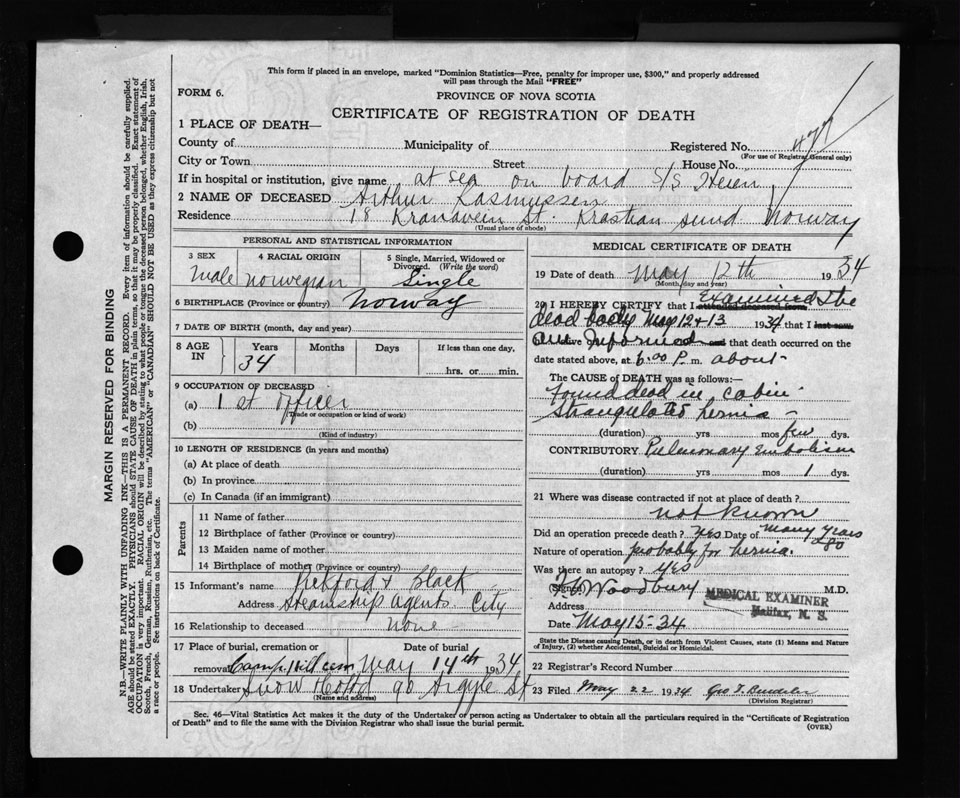 This form if placed in an envelope, marked "Dominion Statistics—Free, penalty for improper use, $300," and properly addressed
will pass through the Mail "FREE"
FORM 6.
PROVINCE OF NOVA SCOTIA
CERTIFICATE OF REGISTRATION OF DEATH
1 PLACE OF DEATH—
County of Municipality of Registered No.
(For use of Registrar General only)
City or Town Street House No.
If in hospital or institution, give name at sea on board S/S
2 NAME OF DECEASED Arthur Rasmussen
Residence 18 St. sund Norway
(Usual place of abode)
MARGIN RESERVED FOR BINDING
N.B.—WRITE PLAINLY WITH UNFADING INK—THIS IS A PERMANENT RECORD. Every item of information should be carefully supplied.
AGE should be stated EXACTLY. PHYSICIANS should STATE CAUSE OF DEATH in plain terms, so that it may be properly classified. Exact statement of
OCCUPATION is very important. RACIAL ORIGIN will be described by stating to what people or tongue the deceased person belonged, whether English, Irish,
Scotch, French, German, Russian, Ruthenian, etc. The terms "AMERICAN" or "CANADIAN" SHOULD NOT BE USED as they express citizenship but not
a race or people. See instructions on back of Certificate.
PERSONAL AND STATISTICAL INFORMATION
3 SEX
male
4 RACIAL ORIGIN
norwegian
5 Single, Married, Widowed or
Divorced. (Write the word)
Single
6 BIRTHPLACE (Province or country) Norway
7 DATE OF BIRTH (month, day and year)
8 AGE
IN
Years Months Days If less than one day,
34
hrs. or min.
9 OCCUPATION OF DECEASED
(a) 1st officer
(Trade or occupation or kind of work)
(b)
(Kind of industry)
10 LENGTH OF RESIDENCE (in years and months)
(a) At place of death
(b) In province
(c) In Canada (if an immigrant)
Parents
11 Name of father
12 Birthplace of father (Province or country)
13 Maiden name of mother
14 Birthplace of mother (Province or country)
15 Informant's name Pickford & Black
Address Steamship Agents City
16 Relationship to deceased none
17 Place of burial, cremation or Date of burial
removal Camp Hill cem May 14th 1934
18 Undertaker Snow 90 Argyle St
(Name and address)
MEDICAL CERTIFICATE OF DEATH
19 Date of death May 12th 1934
(Month, day and year)
20 I HEREBY CERTIFY that I attended deceased from Examined the
dead body May 12 + 13 1934 that I last saw
and Informed and that death occurred on the
date stated above, at 6:00 P. m. about
The CAUSE of DEATH was as follows:—
Found dead in cabin
Strangulated hernia
(duration) yrs mos few dys.
CONTRIBUTORY Pulmonary Embolism
(duration) yrs mos 1 dys.
21 Where was disease contracted if not at place of death ?
not known
Did an operation precede death ? Yes Date of many years
Nature of operation probably for hernia.
Was there an autopsy ? yes
(Signed) Woodbury M.D.
MEDICAL EXAMINER
Halifax, N. S.
Address
Date May 15-34
State the Disease causing Death, or in death from Violent Causes, state (1) Means and Nature
of Injury, (2) whether Accidental, Suicidal or Homicidal.
22 Registrar's Record Number
23 Filed May 22 1934 Geo
(Division Registrar)
Sec. 46—Vital Statistics Act makes it the duty of the Undertaker or person acting as Undertaker to obtain all the particulars required in the "Certificate of Registration
of Death" and to file the same with the Division Registrar who shall issue the burial permit.
(OVER)